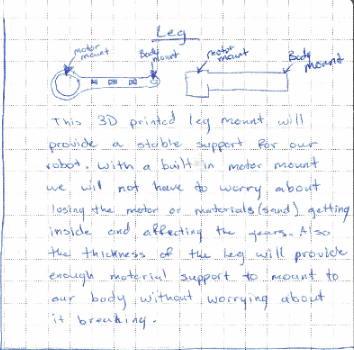 Leg
motor mount
Body mount
motor mount
Body mount
This 3D printed leg mount will
provide a stable support for our
robot. With a built in motor mount
we will not have to worry about
losing the motor or materials (sand) getting
inside and affecting the gears. Also
the thickness of the leg will provide
enough material support to mount to
our body without worrying about
it breaking.